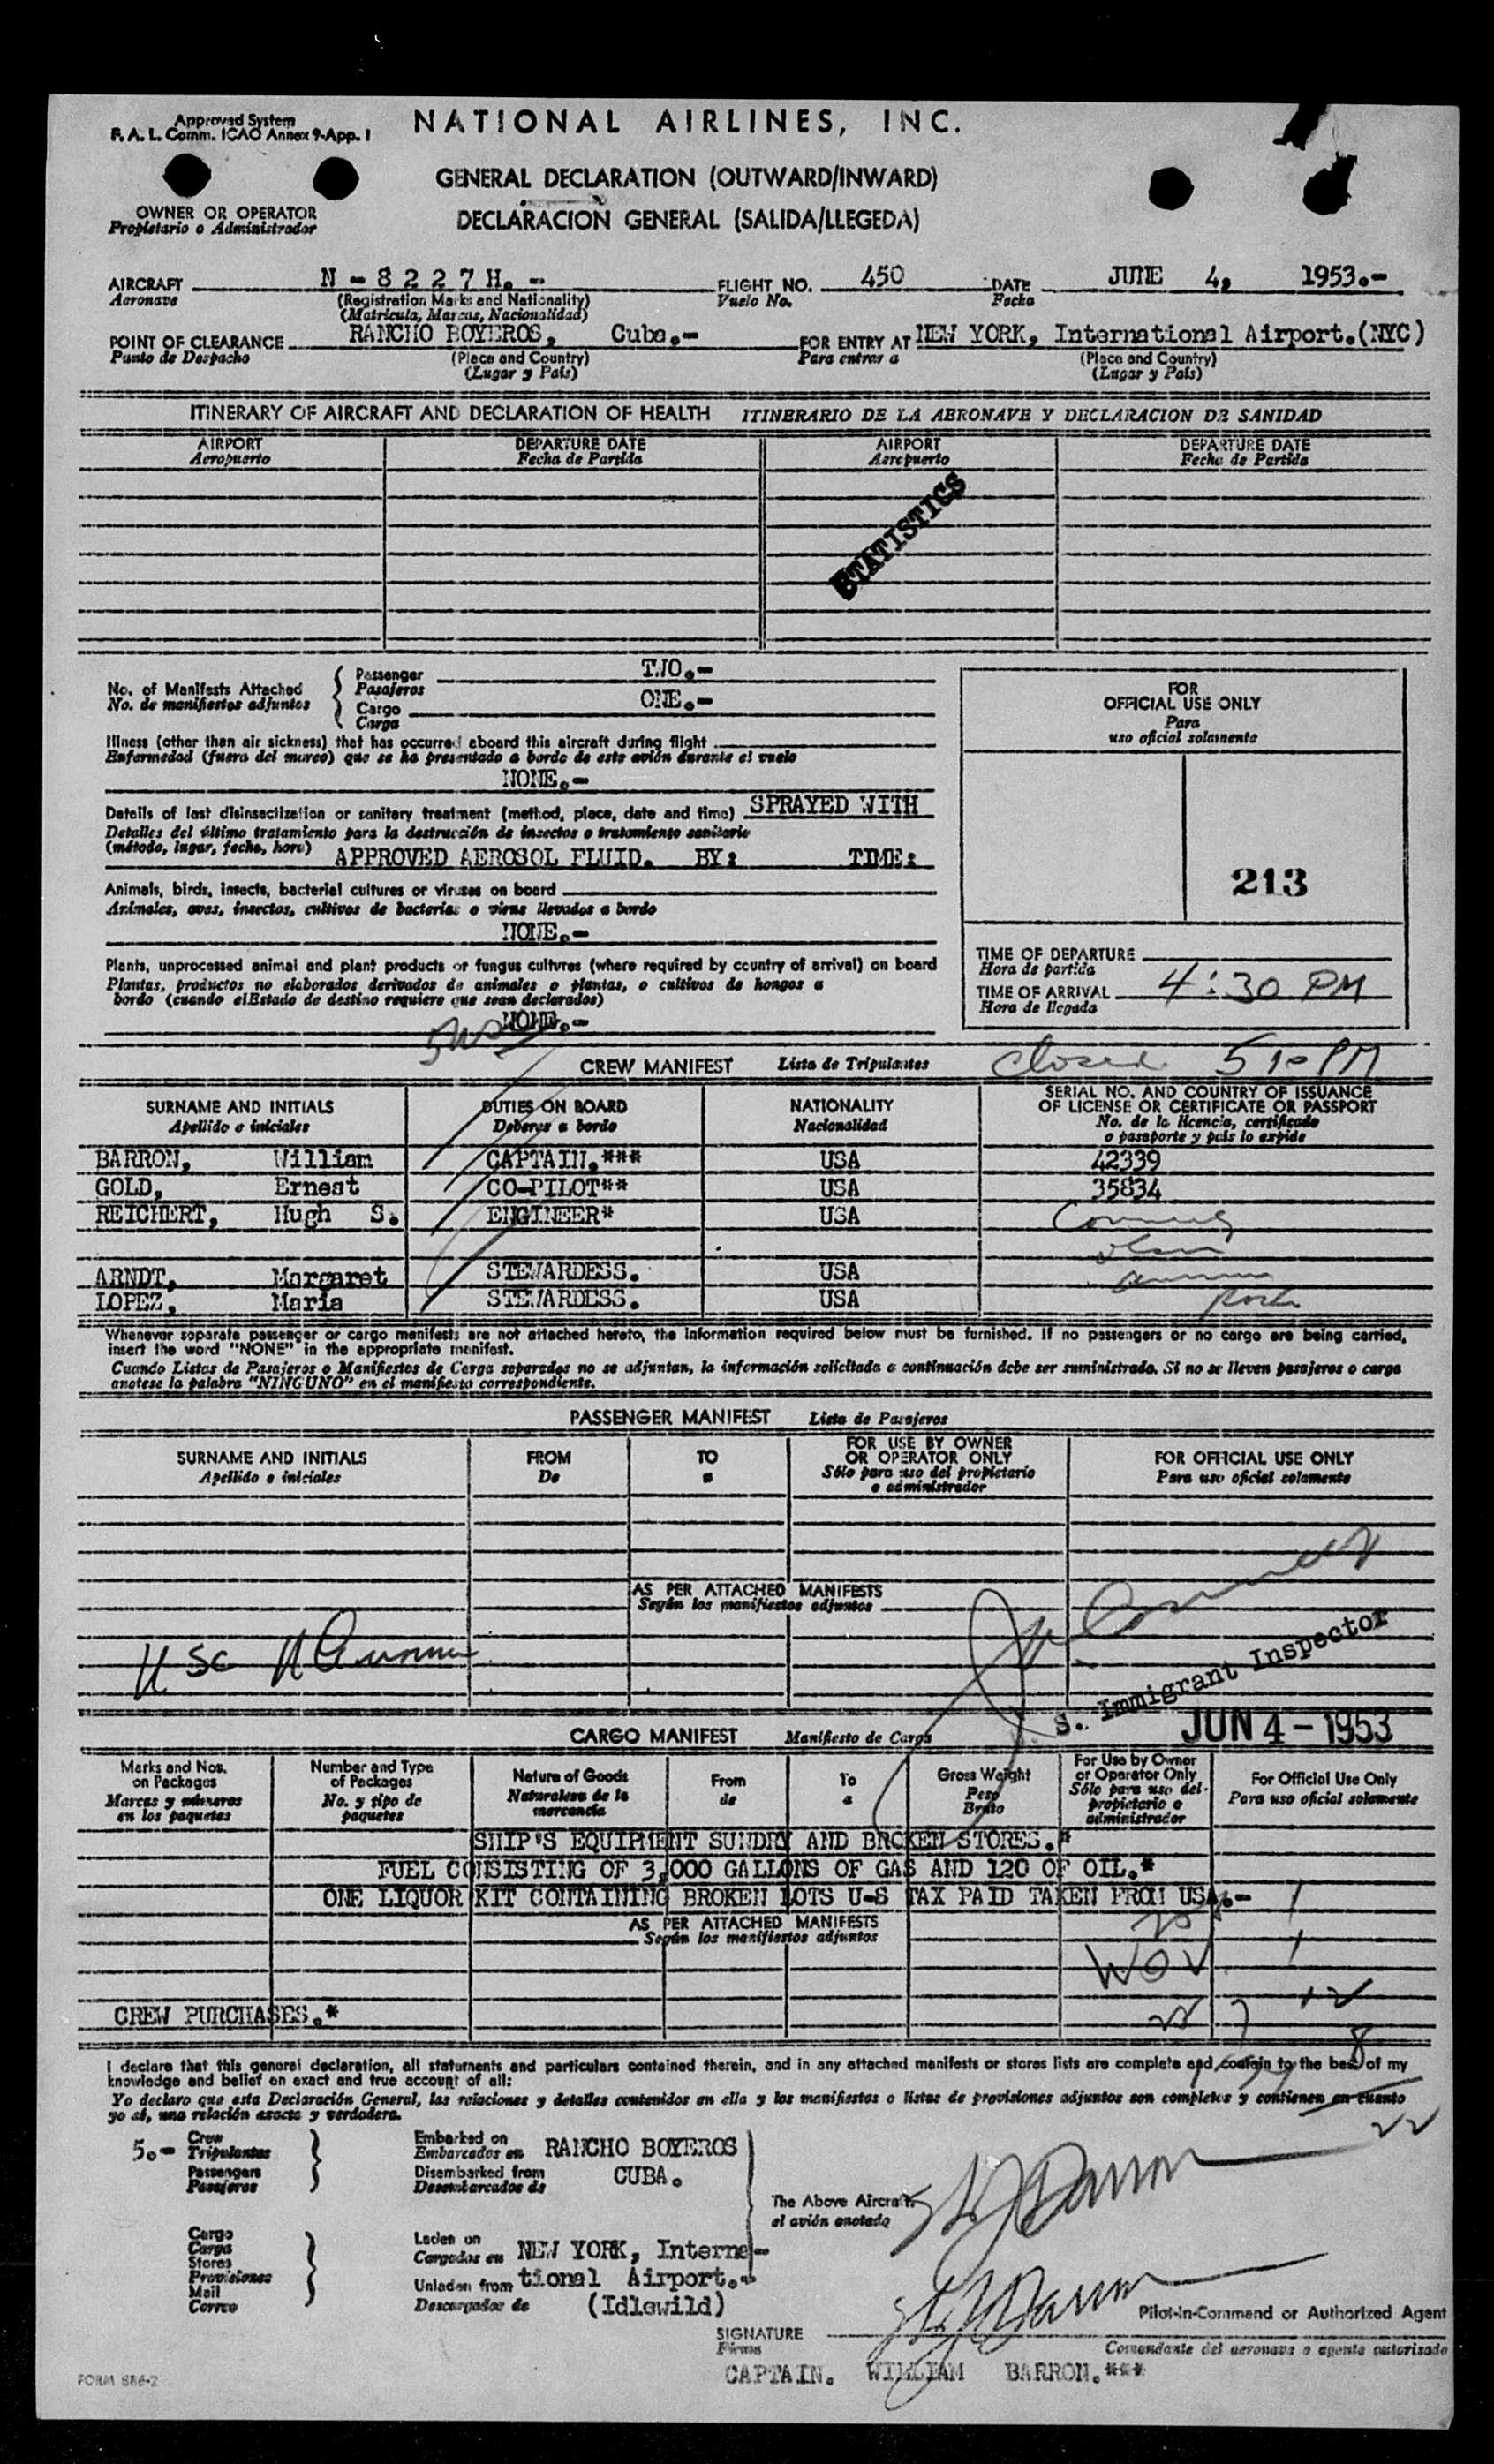 Approved System
F. A. L. Comm. ICAO Annex 9-App. I
NATIONAL AIRLINES, INC.
GENERAL DECLARATION (OUTWARD/INWARD)
OWNER OR OPERATOR
Propietario o Administrador
DECLARACION GENERAL (SALIDA/LLEGEDA)
AIRCRAFT N - 8 2 2 7 H. - FLIGHT NO. 450 DATE JUNE 4, 1953.-
Aeronave (Registration Marks and Nationality) Vuelo No. Fecha
(Matricula, Marcas, Nacionalidad)
POINT OF CLEARANCE RANCHO BOYEROS, Cuba.- FOR ENTRY AT NEW YORK, International Airport.(NYC)
Punto de Despacho (Place and Country) Para entrar a (Place and Country)
(Lugar y Pais) (Lugar y Pais)
ITINERARY OF AIRCRAFT AND DECLARATION OF HEALTH ITINERARIO DE LA AERONAVE Y DECLARACION DE SANIDAD
AIRPORT DEPARTURE DATE AIRPORT DEPARTURE DATE
Aeropuerto Fecha de Partida Aeropuerto Fecha de Partida
STATISTICS
No. of Manifests Attached Passenger TWO.-
No. de manifiestos adjuntos Pasajeros
Cargo ONE.-
Carga
FOR
OFFICIAL USE ONLY
Para
uso oficial solamente
Illness (other than air sickness) that has occurred aboard this aircraft during flight
Enfermedad (fuera del mareo) que se ha presentado a bordo de este avión durante el vuelo
NONE.-
Details of last disinsectization or sanitary treatment (method, place, date and time) SPRAYED WITH
Detalles del último tratamiento para la destrucción de insectos o tratamiento sanitario
(método, lugar, fecha, hora) APPROVED AEROSOL FLUID. BY: TIME:
213
Animals, birds, insects, bacterial cultures or viruses on board
Animales, aves, insectos, cultivos de bacterias o virus llevados a bordo
NONE.-
Plants, unprocessed animal and plant products or fungus cultures (where required by country of arrival) on board
Plantas, productos no elaborados derivados de animales o plantas, o cultivos de hongos a
bordo (cuando elEstado de destino requiere que sean declarados)
NONE.-
TIME OF DEPARTURE
Hora de partida
TIME OF ARRIVAL 4:30 PM
Hora de llegada
CREW MANIFEST Lista de Tripulantes closed 5 10 PM
SURNAME AND INITIALS DUTIES ON BOARD NATIONALITY SERIAL NO. AND COUNTRY OF ISSUANCE
OF LICENSE OR CERTIFICATE OR PASSPORT
Apellido e iniciales Deberes a bordo Nacionalidad No. de la licencia, certificado
o pasaporte y pais lo expide
BARRON, William CAPTAIN.*** USA 42339
GOLD, Ernest CO-PILOT** USA 35834
REICHERT, Hugh S. ENGINEER* USA
ARNDT, Margaret STEWARDESS. USA
LOPEZ, Maria STEWARDESS. USA
Whenever separate passenger or cargo manifests are not attached hereto, the information required below must be furnished. If no passengers or no cargo are being carried,
insert the word "NONE" in the appropriate manifest.
Cuando Listas de Pasajeros o Manifiestos de Cerga separados no se adjuntan, la información solicitada a continuación debe ser suministrada. Si no se lleven pasajeros o carga
anotese la palabra "NINGUNO" en el manifiesto correspondiente.
PASSENGER MANIFEST Lista de Pasajeros
SURNAME AND INITIALS FROM TO FOR USE BY OWNER
OR OPERATOR ONLY FOR OFFICIAL USE ONLY
Apellido e iniciales De a Sólo para uso del propietario
o administrador Para uso oficial solamente
AS PER ATTACHED MANIFESTS
Según los manifiestos adjuntos
S. Immigrant Inspector
JUN 4 - 1953
CARGO MANIFEST Manifiesto de Carga
Marks and Nos.
on Packages
Marcas y números
en los paquetes
Number and Type
of Packages
No. y tipo de
paquetes
Nature of Goods
Naturaleza de la
mercancia
From
de
To
a
Gross Weight
Peso
Bruto
For Use by Owner
or Operator Only
Sólo para uso del
propietario o
administrador
For Official Use Only
Para uso oficial solamente
SHIP'S EQUIPMENT SUNDRY AND BROKEN STORES.*
FUEL CONSISTING OF 3,000 GALLONS OF GAS AND 120 OF OIL.*
ONE LIQUOR KIT CONTAINING BROKEN LOTS U-S TAX PAID TAKEN FROM USA.-
AS PER ATTACHED MANIFESTS
Según los manifiestos adjuntos
CREW PURCHASES.*
I declare that this general declaration, all statements and particulars contained therein, and in any attached manifests or stores lists are complete and contain to the best of my
knowledge and belief an exact and true account of all:
Yo declaro que esta Declaración General, las relaciones y detalles contenidos en ella y los manifiestos o listas de provisiones adjuntos son completos y contienen en cuanto
yo sé, una relación exacta y verdadera.
5.- Crew
Tripulantes
Passengers
Pasajeros
Embarked on
Embarcados en RANCHO BOYEROS
Disembarked from CUBA.
Desembarcados de
The Above Aircraft
el avión anotado
Cargo
Carga
Stores
Provisiones
Mail
Correo
Laden on
Cargados en NEW YORK, Interna-
Unladen from tional Airport.-
Descargados de (Idlewild)
Pilot-in-Command or Authorized Agent
SIGNATURE
Firma
Comandante del aeronave o agente autorizado
CAPTAIN. WILLIAM BARRON.***
FORM 686-2